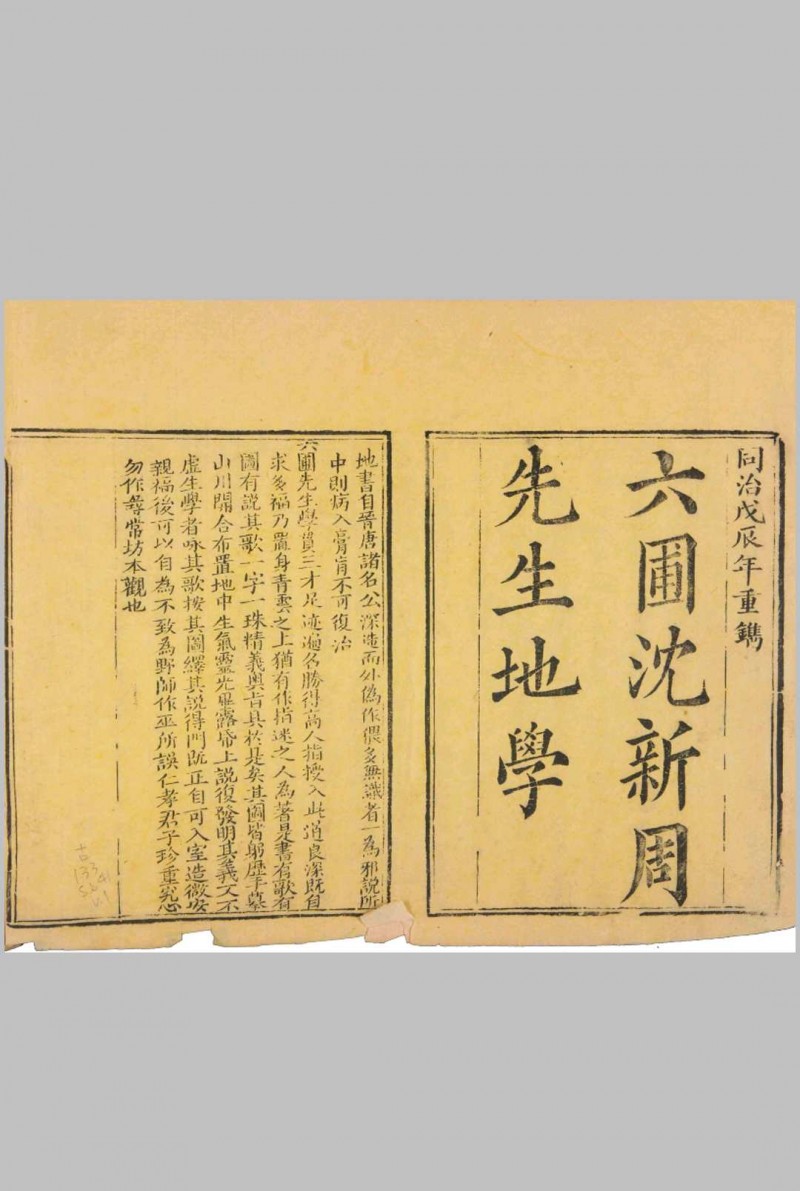 同治戊辰年重鐫
六圃沈新周
先生地學
地書自晉唐諸名公深造而外偽作偎多無識者一為邪說所
中則病入膏肓不可復治
六圃先生學貫三才足迹遍名勝得高人指授入此道良深既自
求多福乃置身青雲之上猶有作指迷之人為著是書有歌有
圖有說其歌一字一珠精義奧旨具於是矣其圖皆躬歷手摹
山川開合布置地中生氣靈光畢露帋上說復發明其義又不
虛生學者咏其歌按其圖繹其說得門既正自可入室造微安
親福後可以自為不致為野師作巫所誤仁孝君子珍重究心
勿作尋常坊本觀也